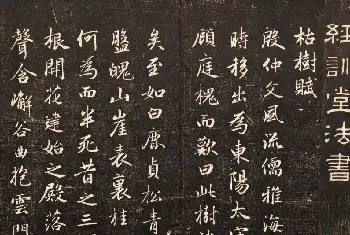 經訓堂法書
枯樹賦
殷仲文風流儒雅海
時移出為東陽太守
顧庭槐而歎曰此樹婆
矣至如白鹿貞松青
盤魄山崖表裏桂
何為而半死昔之三
根開花建始之殿落
聲含嶰谷曲抱雲門